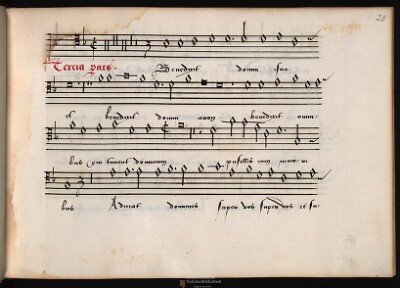 23
Tercia pars Benedixit domui isra
et benedixit domui aaron benedixit omni
bus qui timent dominum pusillis cum maiori
bus Adiciat dominus super vos super vos et su